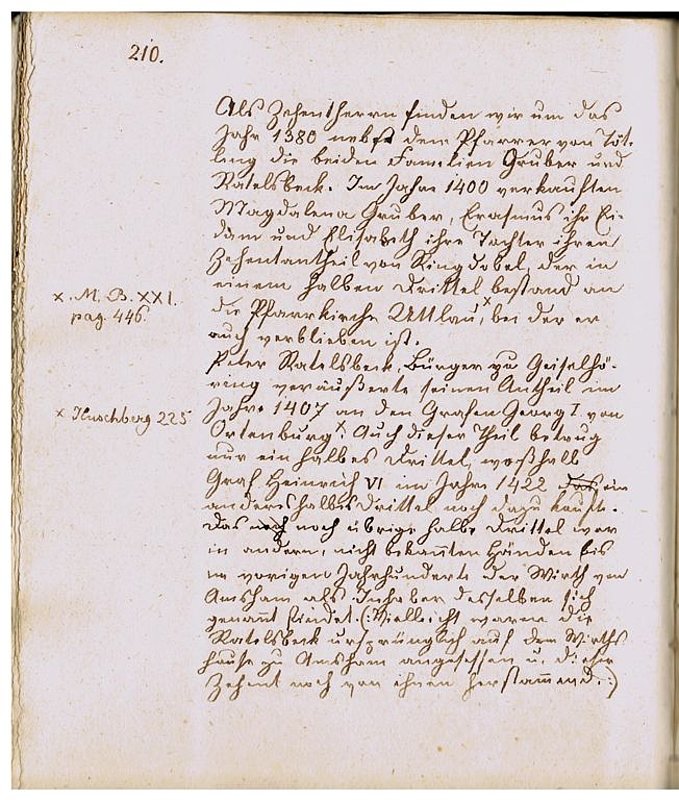 210.
Als Zehentherrn finden wir um das
Jahr 1380 nebst dem Pfarrer von Töt-
leng die beiden Familien Gruber und
Ratelsbeck. Im Jahre 1400 verkauften
Magdalena Gruber, Erasmus ihr Ei-
dam und Elisabeth ihre Tochter ihren
Zehentantheil von Ringdobel, der in
einem halben Drittel bestand an
x. M. B. XXI.
pag. 446.
die Pfarrkirche Uttlau,x bei der er
auch verblieben ist.
Peter Ratelsbeck, Bürger zu Geiselhö-
ring veräußerte seinen Antheil im
x Huschberg 225
Jahre 1407 an den Grafen Georg I. von
Ortenburg.x Auch dieser Theil betrug
nur ein halbes Drittel, weßhalb
Graf Heinrich VI im Jahre 1422 das ein
anderes halbes Drittel noch dazu kaufte.
Das noch noch übrige halbe Drittel war
in andern, nicht bekannten Händen bis
im vorigen Jahrhunderte der Wirth von
Amsham als Inhaber desselben sich
genannt findet. (: Vielleicht waren die
Ratelsbeck ursprünglich auf dem Wirths
hause zu Amsham angesessen u. dieser
Zehent noch von ihnen herstammend. :)